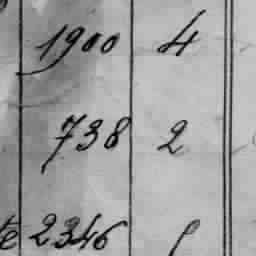 1900 4
738 2
te 2346